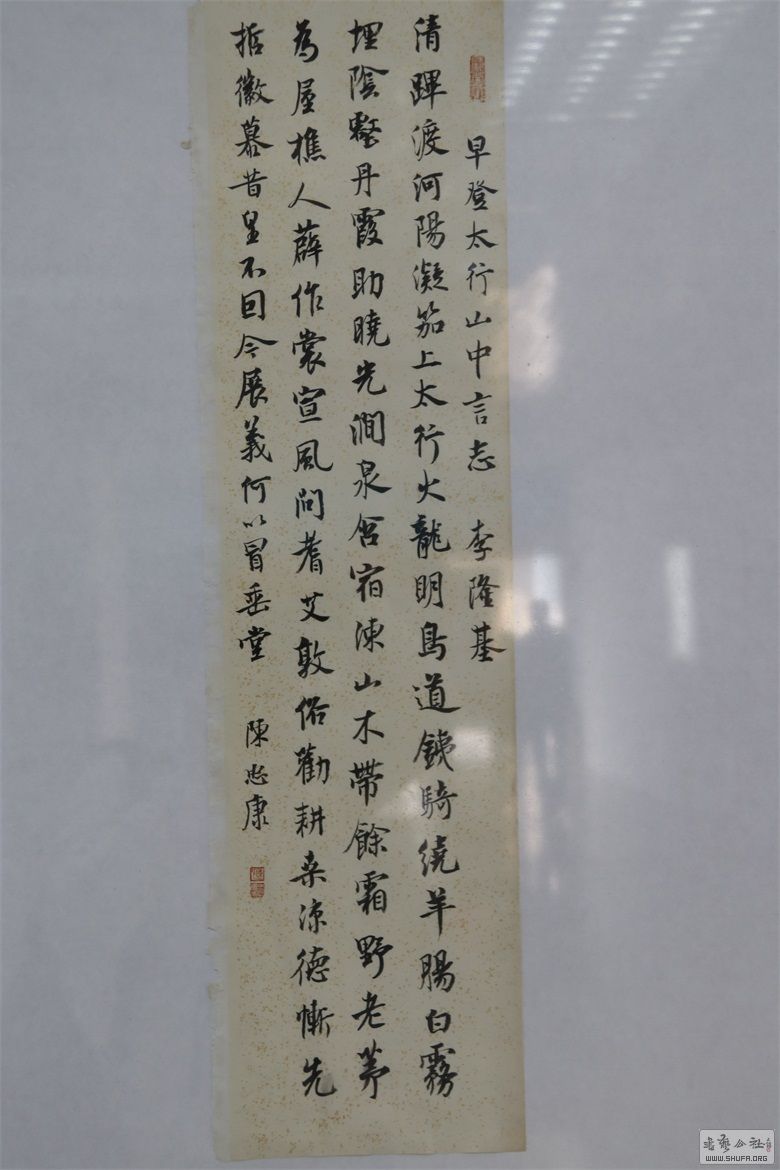 早登太行山中言志 李隆基
清蹕渡河陽凝笳上太行火龍明鳥道鐵騎繞羊腸白霧
埋陰壑丹霞助曉光澗泉含宿凍山木帶餘霜野老茅
為屋樵人薜作裳宣風問耆艾敦俗勸耕桑涼德慚先
哲徽慕昔皇不因今展義何以冒垂堂 陳忠康
書藝公社
WWW.SHUFA.ORG